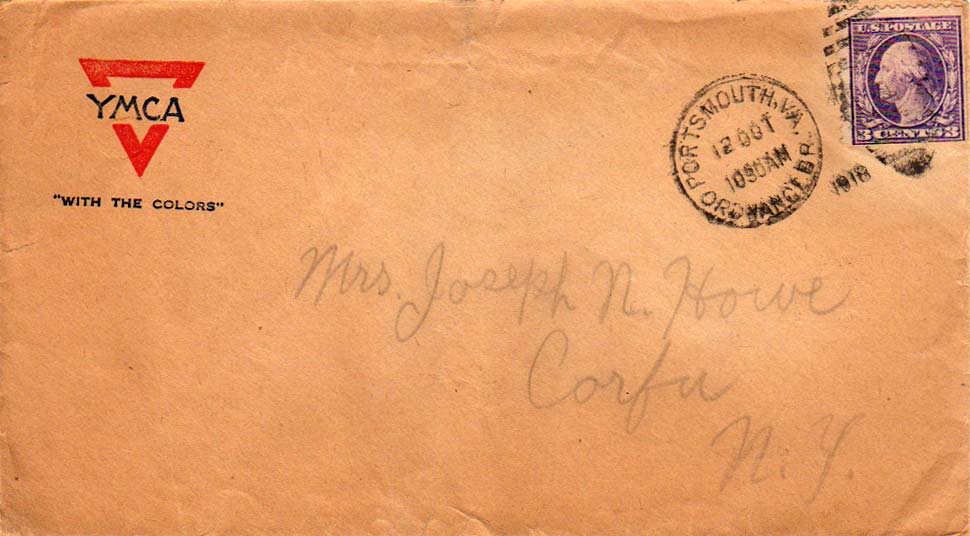 YMCA
"WITH THE COLORS"
U.S. POSTAGE
3 CENTS 3
PORTSMOUTH, VA.
12 OCT
1030AM
1918
ORDNANCE BR.
Mrs. Joseph N. Howe
Corfu
N.Y.